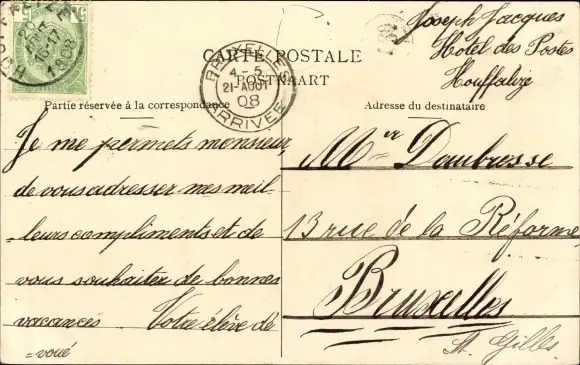 Joseph Jacques
Hotel des Postes
Houffalize
CARTE POSTALE
POSTKAART
BRUXELLES
4-5
21-AOUT
08
ARRIVÉE
1908
Partie réservée à la correspondance
Adresse du destinataire
Je me permets monsieur
de vous adresser mes meil-
-leurs compliments et de
vous souhaiter de bonnes
vacances Votre élève dé
-voué
Mr Daubresse
13 rue de la Réforme
Bruxelles
St. Gilles